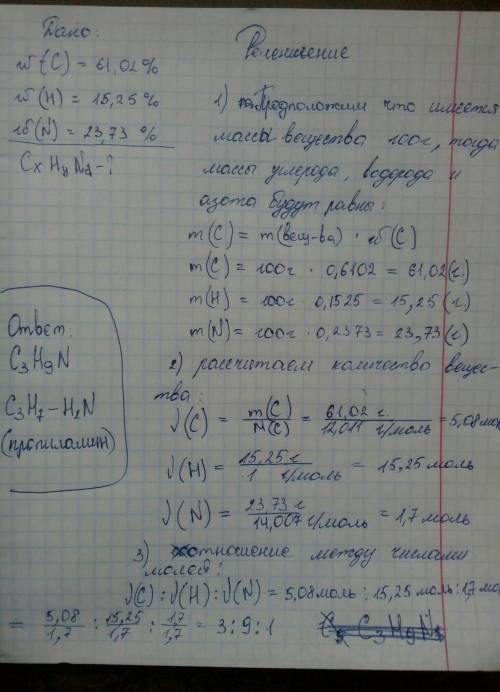 Дано:
w(C) = 61,02 %
w(H) = 15,25 %
w(N) = 23,73 %
CxHyNz - ?
Решение
1) Предположим что имеется
масса вещества 100г, тогда
массы углерода, водорода и
азота будут равны:
m(C) = m(вещ-ва) · w(C)
m(C) = 100г · 0,6102 = 61,02(г.)
m(H) = 100г · 0,1525 = 15,25(г)
m(N) = 100г · 0,2373 = 23,73(г)
2) рассчитаем количество вещес-
тва:
ν(C) = m(C)/M(C) = 61,02 г./12,011 г/моль = 5,08моль
ν(H) = 15,25 г/1 г/моль = 15,25 моль
ν(N) = 23,73 г/14,007 г/моль = 1,7 моль
3) отношение между числами
молей:
ν(C) : ν(H) : ν(N) = 5,08моль : 15,25 моль : 1,7 мо
= 5,08/1,7 : 15,25/1,7 : 1,7/1,7 = 3:9:1
C3H9N1
Ответ:
C3H9N
C3H7-H2N
(пропиламин)